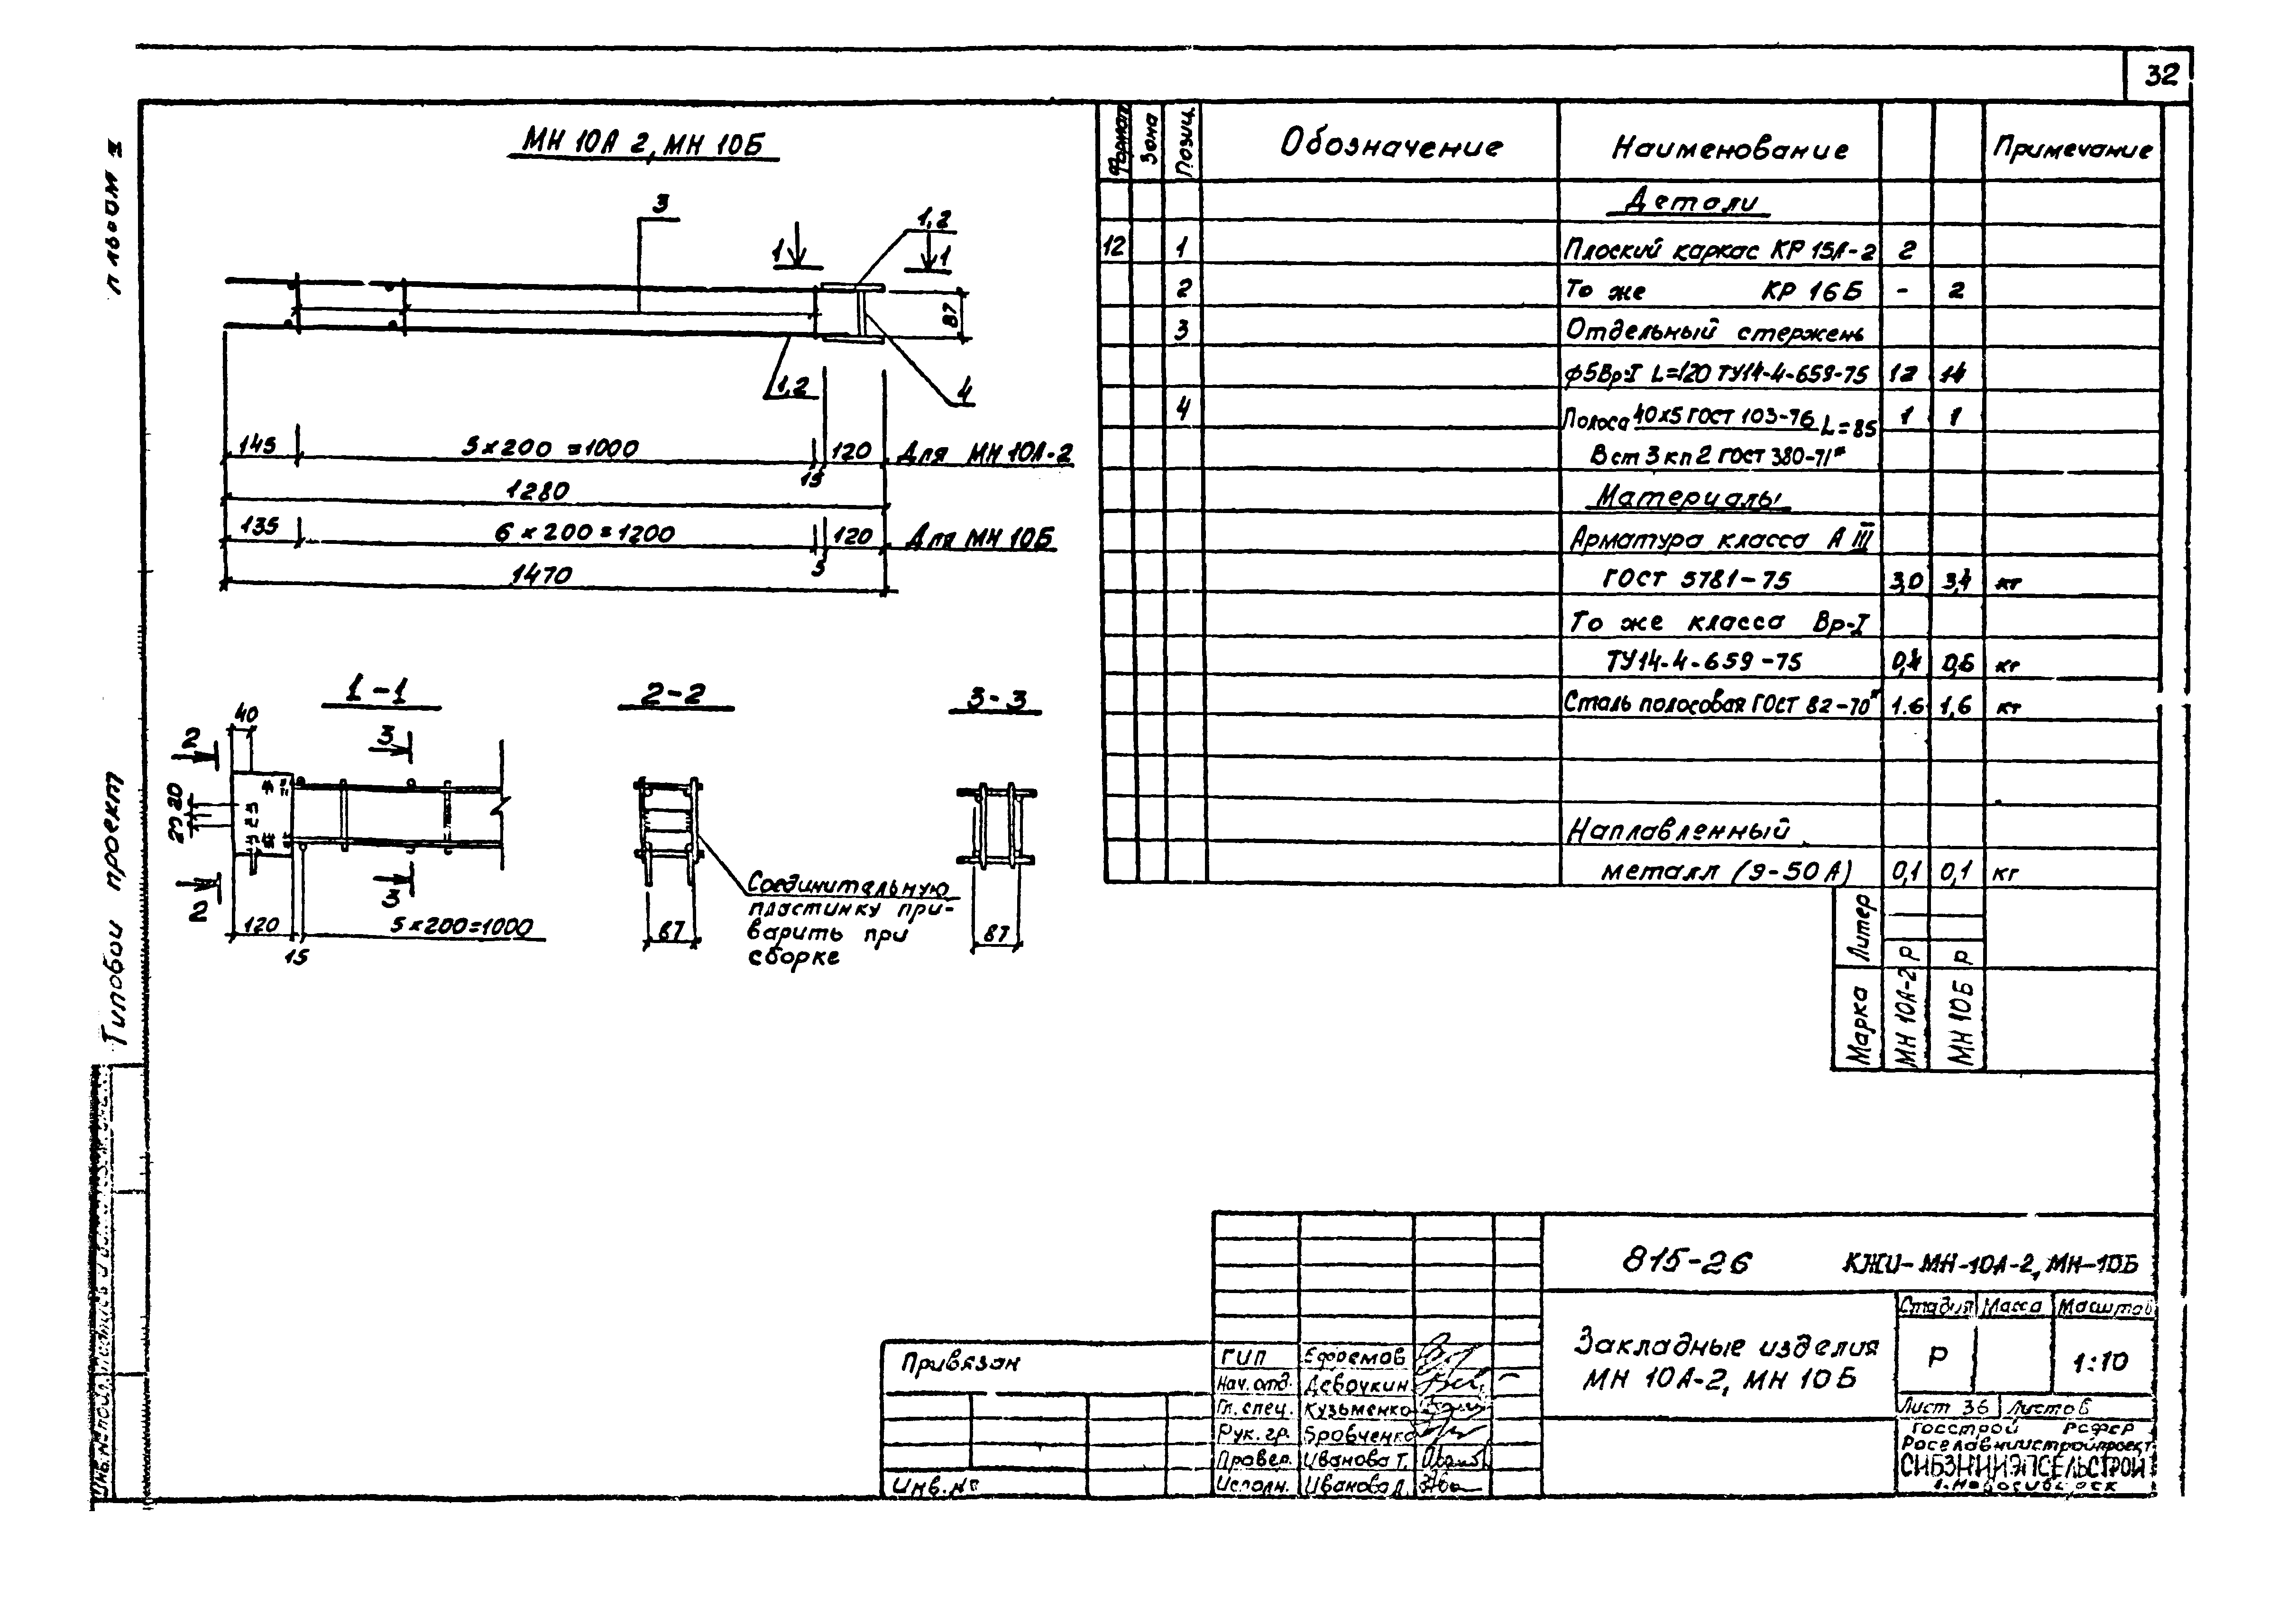 32
Типовой проект
МН 10А 2, МН 10Б
3
1
1,2
1
87
1,2
4
145
5×200 =1000
15
120
Для МН 10А-2
1280
135
6×200=1200
5
120
Для МН 10Б
1470
1-1
2-2
3-3
40
2
3
20 20
2
3
120
15
5×200=1000
87
Соединительную
пластинку при-
варить при
сборке
87
Формат Зона Позиц. Обозначение Наименование Примечание
Детали
12 1 Плоский каркас КР 15А-2 2
2 То же КР 16Б - 2
3 Отдельный стержень
ф5Вр-I L=120 ТУ14-4-659-75 12 14
4 Полоса 40×5 ГОСТ 103-76 L=85 1 1
Вст 3 кп 2 ГОСТ 380-71*
Материалы
Арматура класса А III
ГОСТ 5781-75 3,0 3,4 кг
То же класса Вр-I
ТУ14-4-659-75 0,4 0,5 кг
Сталь полосовая ГОСТ 82-70* 1.6 1,6 кг
Наплавленный
металл (Э-50А) 0,1 0,1 кг
Литер Р Р
Марка МН 10А-2 МН 10Б
815-26 КЖИ-МН-10А-2, МН-10Б
Закладные изделия
МН 10А-2, МН 10Б
Стадия Масса Масштаб
Р 1:10
Лист 36 Листов
Госстрой РСФСР
Росглавниистройпроект
СИБЗНИИЭПСЕЛЬСТРОЙ
г. Новосибирск
Привязан
Инв. №
ГИП Ефремов
Нач. отд. Девочкин
Гл. спец. Кузьменко
Рук. гр. Бровченко
Провер. Иванова Т.
Исполн. Иванова Л.